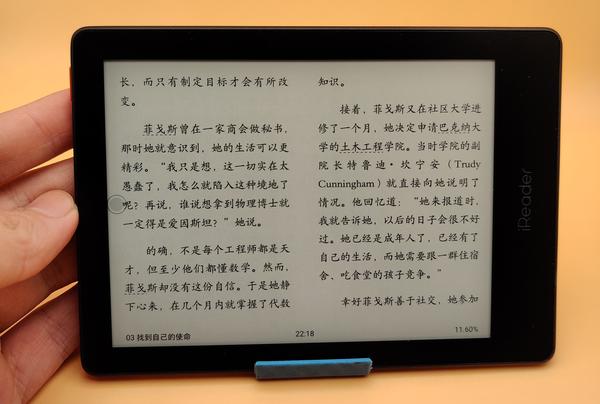 长，而只有制定目标才会有所改
变。
菲戈斯曾在一家商会做秘书，
那时她就意识到，她的生活可以更
精彩。“我只是想，这一切实在太
愚蠢了，我怎么就陷入这种境地了
呢？再说，谁说想拿到物理博士就
一定得是爱因斯坦？”她说。
的确，不是每个工程师都是天
才，但至少他们都懂数学。然而，
菲戈斯却没有这份自信。于是她静
下心来，在几个月内就掌握了代数
知识。
接着，菲戈斯又在社区大学进
修了一个月，她决定申请巴克纳大
学的土木工程学院。当时学院的副
院长特鲁迪·坎宁安（Trudy
Cunningham）就直接向她说明了
情况。他回忆道：“她来报道时，
我就告诉她，以后的日子会很不好
过。她已经是成年人了，已经有了
自己的生活，而她需要跟一群住宿
舍、吃食堂的孩子竞争。”
幸好菲戈斯善于社交，她参加
03 找到自己的使命
22:18
11.60%
iReader